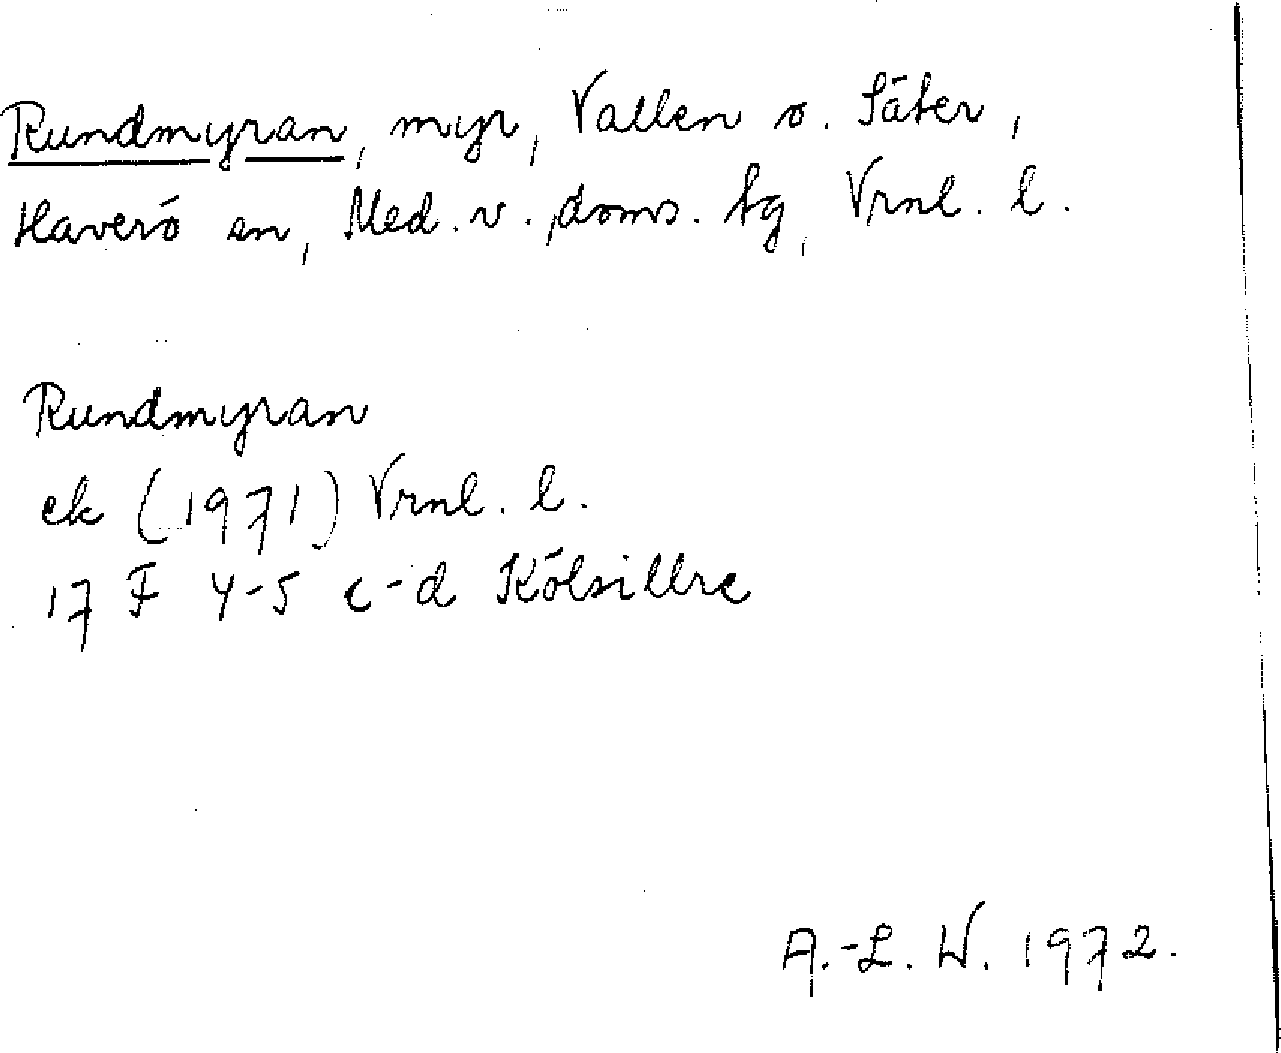 Rundmyran, myr, Vallen o. Säter,
Haverö sn, Med. v. doms. tg, Vrnl. l.
Rundmyran
ek (1971) Vrnl. l.
17 F 4-5 c-d Kölsillre
A.-L. W. 1972.